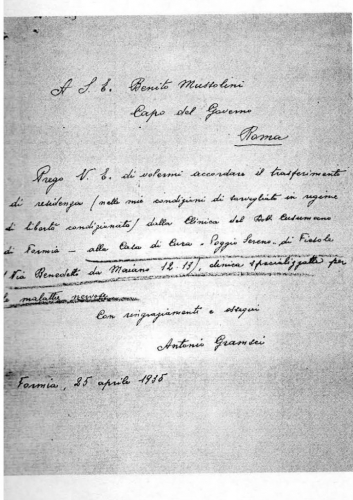 A S. E. Benito Mussolini
Capo del Governo
Roma
Prego V. E. di volermi accordare il trasferimento
di residenza (nelle mie condizioni di sorvegliato in regime
di libertà condizionata) dalla Clinica del Dott. Cusumano
di Formia – alla Casa di Cura "Poggio Sereno" di Fiesole
(Via Benedetto da Maiano 12-13), clinica specializzata per
le malattie nervose.
Con ringraziamenti e ossequi
Antonio Gramsci
Formia, 25 aprile 1935